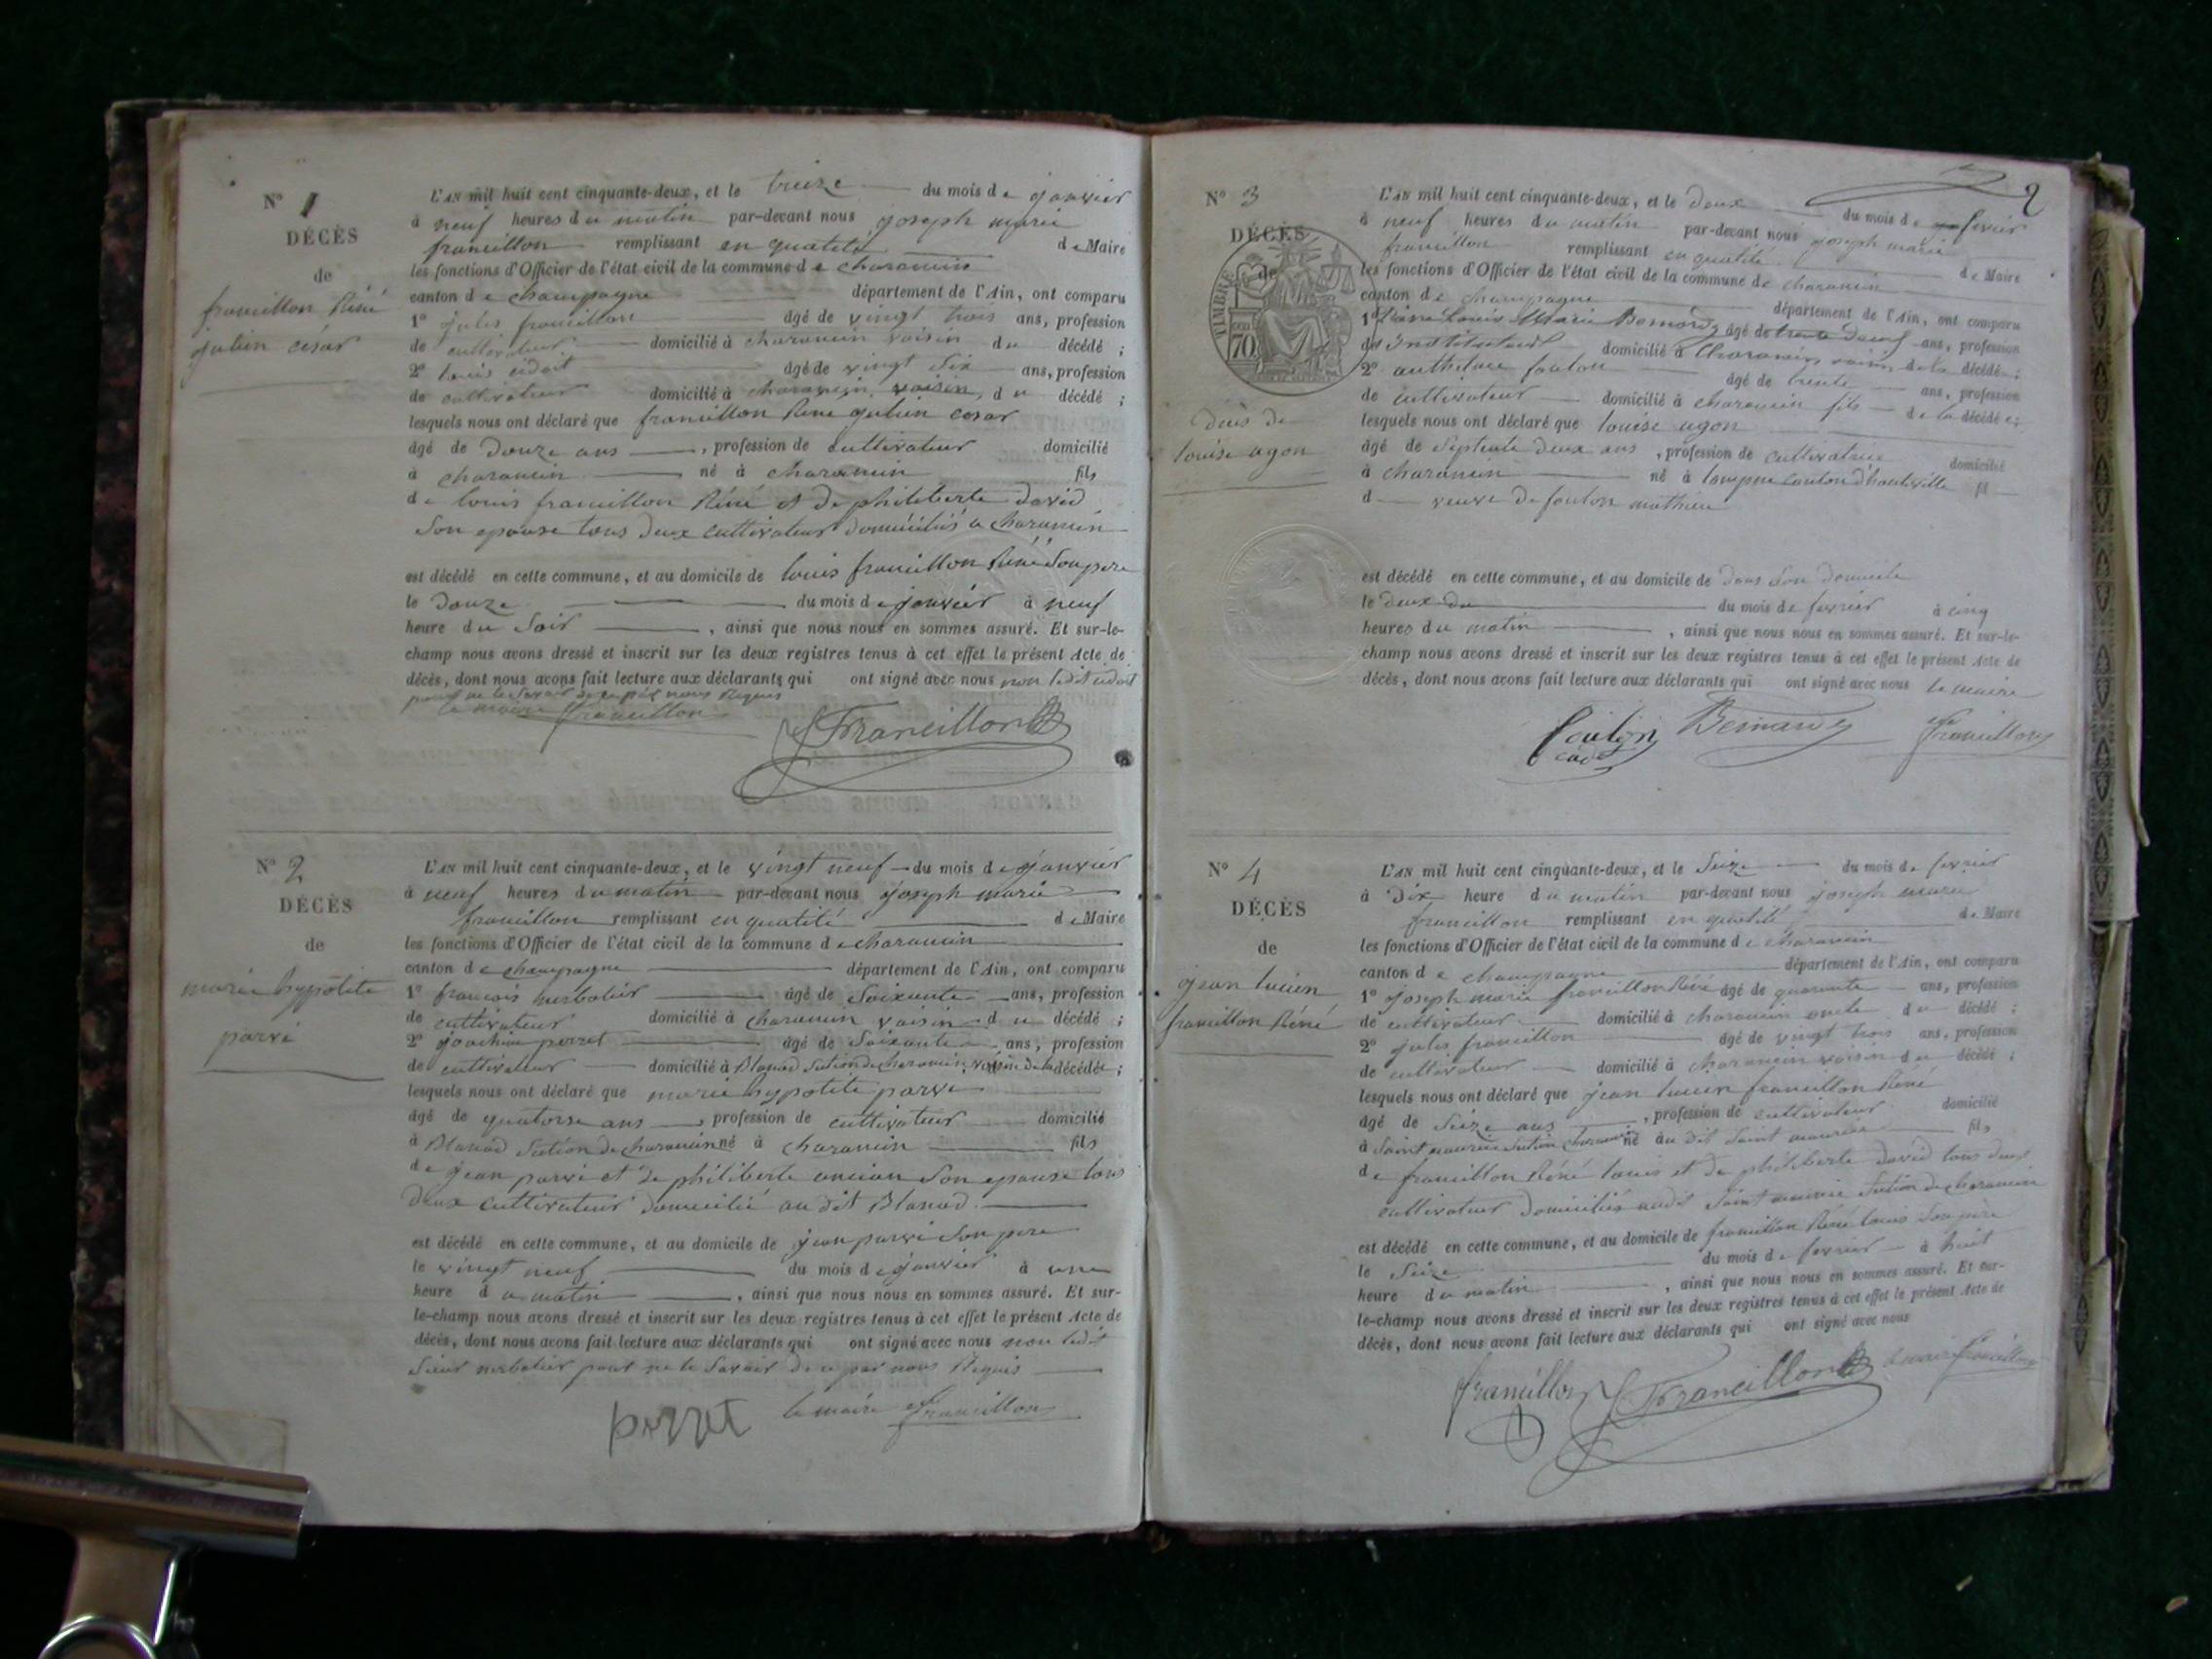 N° 1
DÉCÈS
de
francillon Réné
julien césar
L'AN mil huit cent cinquante-deux, et le treize du mois de janvier
à neuf heures du matin par-devant nous joseph marie
francillon remplissant en qualité de Maire
les fonctions d'Officier de l'état civil de la commune de charancin
canton de champagne département de l'Ain, ont comparu
1° jules francillon âgé de vingt trois ans, profession
de cultivateur domicilié à charancin voisin du décédé ;
2° louis âgé de vingt six ans, profession
de cultivateur domicilié à charancin, voisin, du décédé ;
lesquels nous ont déclaré que francillon Réné julien cesar
âgé de Douze ans , profession de cultivateur domicilié
à charancin né à charancin fils
de louis francillon Réné et de philiberte david
Son epouse tous deux cultivateur domiciliés a charancin
est décédé en cette commune, et au domicile de louis francillon Réné Son pere
le Douze du mois de janvier à neuf
heure du Soir , ainsi que nous nous en sommes assuré. Et sur-le-
champ nous avons dressé et inscrit sur les deux registres tenus à cet effet le présent Acte de
décès, dont nous avons fait lecture aux déclarants qui ont signé avec nous non ledit
pour ne le Savoir de ce par nous Requis
le maire francillon
J Francillon
N° 2
DÉCÈS
de
marie hypolite
parvi
L'AN mil huit cent cinquante-deux, et le vingt neuf du mois de janvier
à neuf heures du matin par-devant nous joseph marie
francillon remplissant en qualité de Maire
les fonctions d'Officier de l'état civil de la commune de charancin
canton de champagne département de l'Ain, ont comparu
1° francois âgé de Soixante ans, profession
de cultivateur domicilié à charancin voisin du décédé ;
2° joachim perret âgé de Soixante ans, profession
de cultivateur domicilié à Blanad Section de charancin, voisin de la décédée ;
lesquels nous ont déclaré que marie hypolite parvi
âgé de quatorse ans , profession de cultivateur domicilié
à Blanad Section de charancin né à charancin fils
de jean parvi et de philiberte ancian Son epouse tous
deux cultivateur domicilié au dit Blanad.
est décédé en cette commune, et au domicile de jean parvi Son pere
le vingt neuf du mois de janvier à une
heure du matin , ainsi que nous nous en sommes assuré. Et sur-
le-champ nous avons dressé et inscrit sur les deux registres tenus à cet effet le présent Acte de
décès, dont nous avons fait lecture aux déclarants qui ont signé avec nous non ledit
Sieur pour ne le Savoir de ce par nous Requis
perret le maire francillon
2
N° 3
DÉCÈS
de
TIMBRE
70
décès de
louise ugon
L'AN mil huit cent cinquante-deux, et le deux du mois de fevrier
à neuf heures du matin par-devant nous joseph marie
francillon remplissant en qualité de Maire
les fonctions d'Officier de l'état civil de la commune de charancin
canton de champagne département de l'Ain, ont comparu
1° Louis Marie Bernard âgé de ans, profession
d'Instituteur domicilié à Charancin voisin de la décédé ;
2° anthelme foulon âgé de trente ans, profession
de cultivateur domicilié à charancin fils de la décédée ;
lesquels nous ont déclaré que louise ugon
âgé de Septente deux ans , profession de cultivatrice domicilié
à charancin né à canton d'hauteville fil
d veuve de foulon mathieu
est décédé en cette commune, et au domicile de dans Son domicile
le deux du du mois de fevrier à cinq
heures du matin , ainsi que nous nous en sommes assuré. Et sur-le-
champ nous avons dressé et inscrit sur les deux registres tenus à cet effet le présent Acte de
décès, dont nous avons fait lecture aux déclarants qui ont signé avec nous le maire
Bernard francillon
N° 4
DÉCÈS
de
jean lucien
francillon Réné
L'AN mil huit cent cinquante-deux, et le Seize du mois de fevrier
à Dix heure du matin par-devant nous joseph marie
francillon remplissant en qualité de Maire
les fonctions d'Officier de l'état civil de la commune de charancin
canton de champagne département de l'Ain, ont comparu
1° joseph marie francillon Réné âgé de quarante ans, profession
de cultivateur domicilié à charancin oncle du décédé ;
2° jules francillon âgé de vingt trois ans, profession
de cultivateur domicilié à charancin voisin du décédé ;
lesquels nous ont déclaré que jean lucien francillon Réné
âgé de Seize ans , profession de cultivateur domicilié
à Saint maurice Section charancin né au dit Saint maurice fils
de francillon Réné louis et de philiberte david tous deux
cultivateur domiciliés audit Saint maurice Section de charancin
est décédé en cette commune, et au domicile de francillon Réné louis Son père
le Seize du mois de fevrier à huit
heure du matin , ainsi que nous nous en sommes assuré. Et sur-
le-champ nous avons dressé et inscrit sur les deux registres tenus à cet effet le présent Acte de
décès, dont nous avons fait lecture aux déclarants qui ont signé avec nous
francillon J Francillon le maire francillon